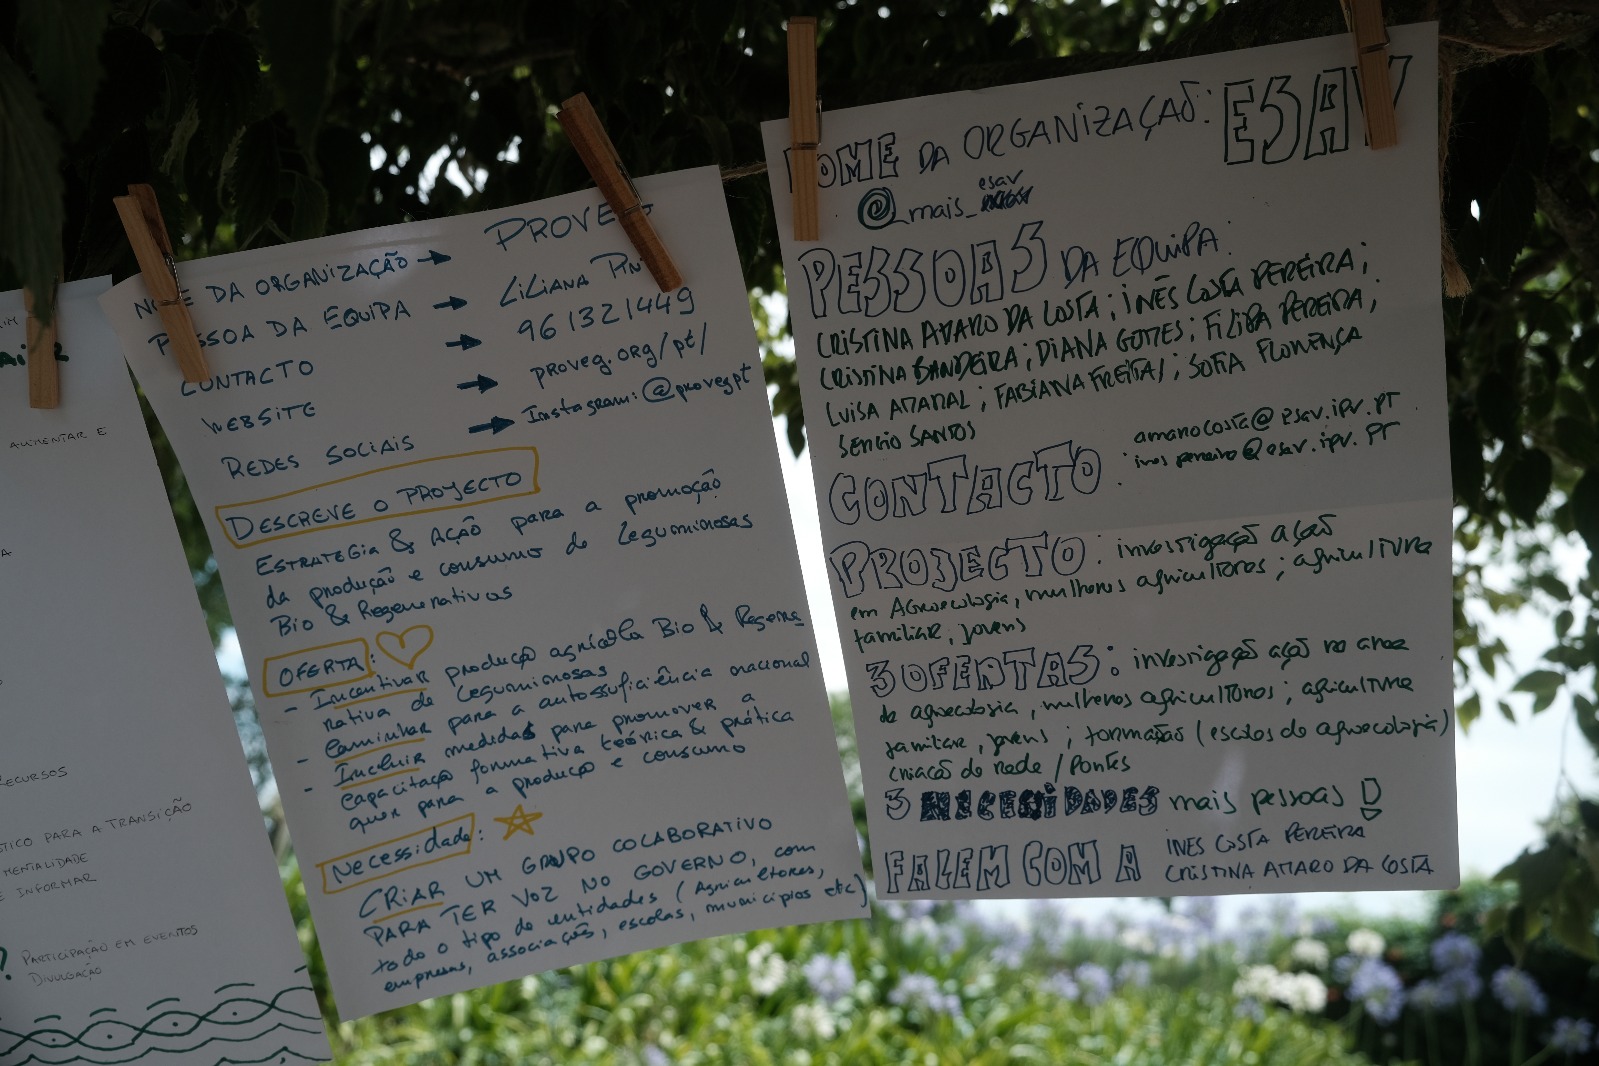 AUMENTAR E
RECURSOS
PARA A TRANSIÇÃO
MENTALIDADE
E INFORMAR
? PARTICIPAÇÃO EM EVENTOS
DIVULGAÇÃO
DA ORGANIZAÇÃO → PROVEG
PESSOA DA EQUIPA → LILIANA
CONTACTO → 961321449
WEBSITE → proveg.org/pt/
REDES SOCIAIS → Instagram: @provegpt
DESCREVE O PROJECTO
ESTRATÉGIA & AÇÃO para a promoção
da produção e consumo de leguminosas
Bio & Regenerativas
OFERTA:
- Incentivar produção agrícola Bio & Regene
rativa de leguminosas
- Caminhar para a autossuficiência nacional
- Incluir medidas para promover a
capacitação formativa teórica & prática
quer para a produção e consumo
Necessidade:
CRIAR UM GRUPO COLABORATIVO
PARA TER VOZ NO GOVERNO, com
todo o tipo de entidades (Agricultores,
empresas, associações, escolas, municípios etc)
NOME DA ORGANIZAÇÃO: ESAV
@_mais_esav
PESSOAS DA EQUIPA:
CRISTINA AMARO DA COSTA; INÊS COSTA PEREIRA;
CRISTINA BANDEIRA; DIANA GOMES; FILIPA PEREIRA;
LUISA AMARAL; FABIANA FREITAS; SOFIA FLORENÇA
SERGIO SANTOS
CONTACTO: amarocosta@esav.ipv.pt
ines pereira@esav.ipv.pt
PROJECTO: investigação ação
em Agroecologia, mulheres agricultoras; agricultura
familiar, jovens
3 OFERTAS: investigação ação na area
da agroecologia, mulheres agricultoras; agricultura
familiar, jovens; formação (escolas de agroecologia)
criação de rede / Pontes
3 NECESSIDADES mais pessoas!
FALEM COM A INES COSTA PEREIRA
CRISTINA AMARO DA COSTA